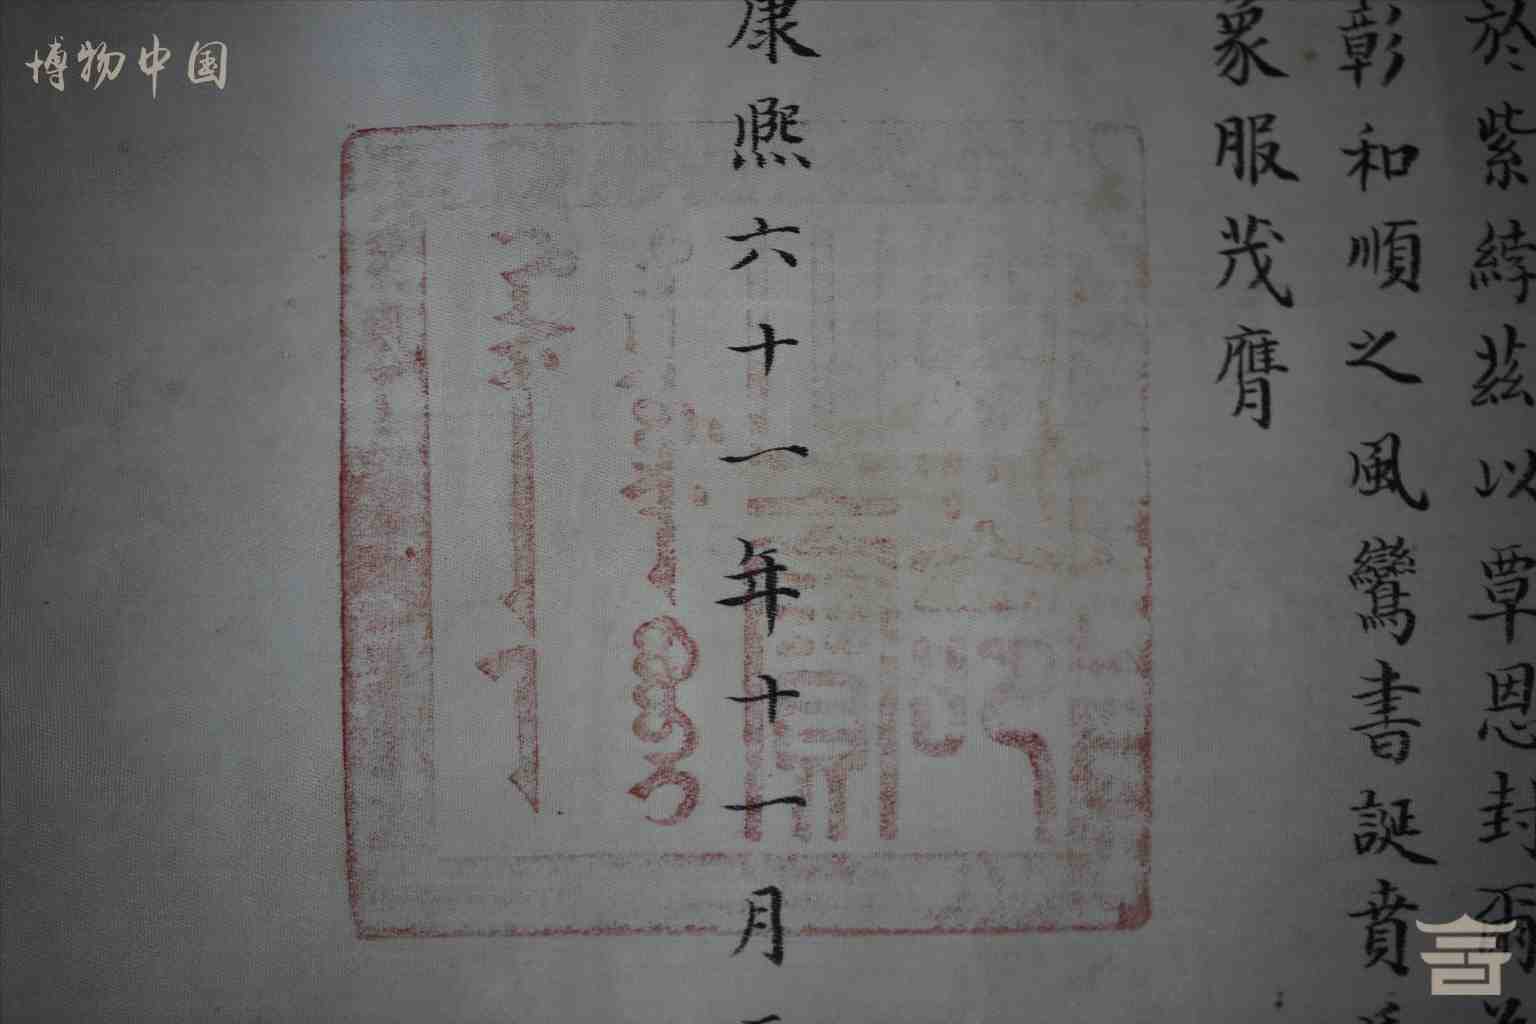 博物中国
於紫綍茲以覃恩封爾為
彰和順之風鸞書誕賁
象服茂膺
康熙六十一年十一月